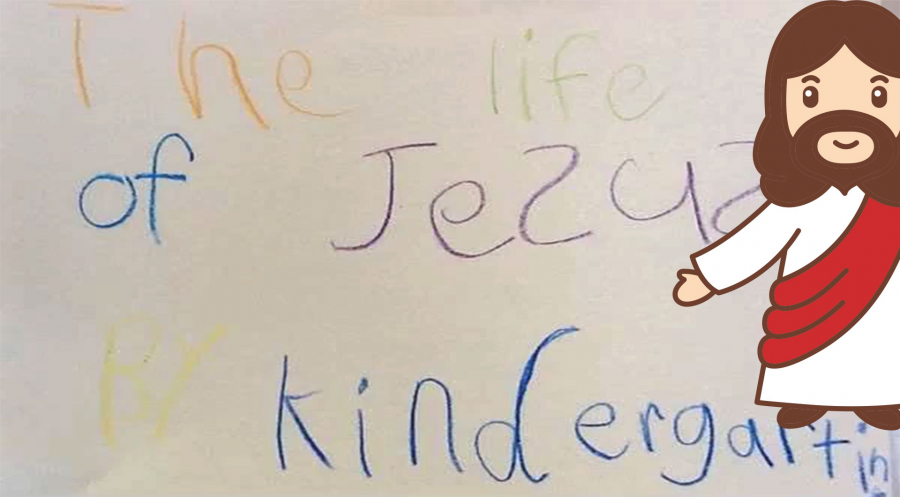 The life
of Jezuz
By Kindergartin